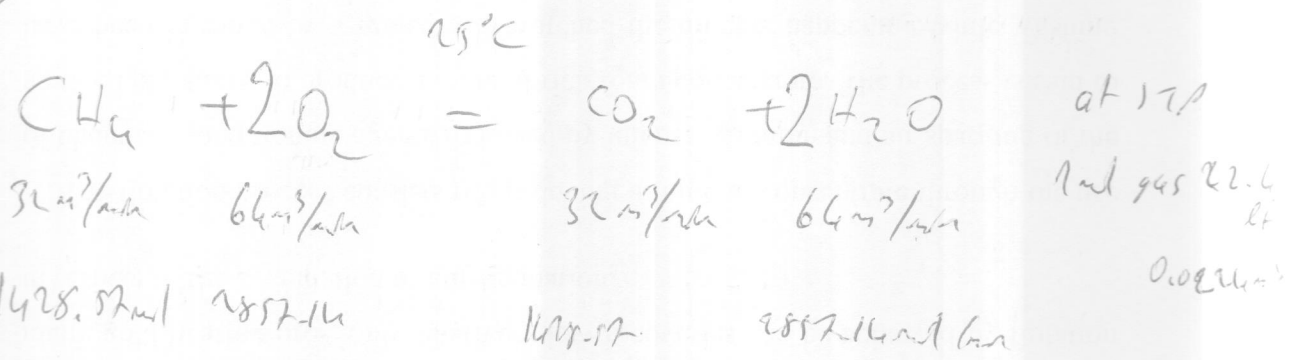 25°C
CH4 +2O2 = CO2 +2H2O at STP
32 m³/min 64 m³/min 32 m³/min 64 m³/min 1 mol gas 22.4 lt
1428.57 mol 2857.14 1428.57 2857.14 mol/min 0.0224 m³